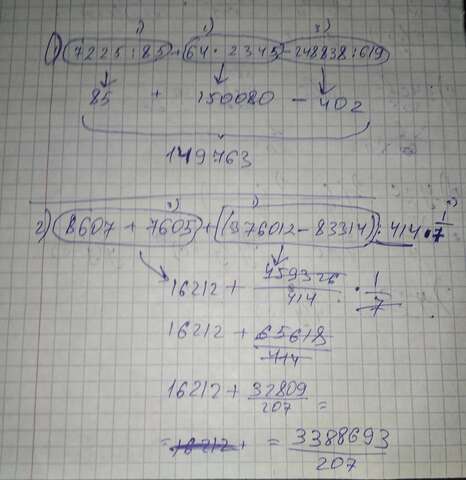 1) 1) 3)
1) 7225:85 + 64 · 2345 - 248838:619
85 + 150080 - 402
149763
2) 1)
2) (8607 + 7605) + (376012 - 83314) : 414 · 1/7
16212 + 459326/414 · 1/7
16212 + 65618/414
16212 + 32809/207 =
= 16212 + = 3388693/207